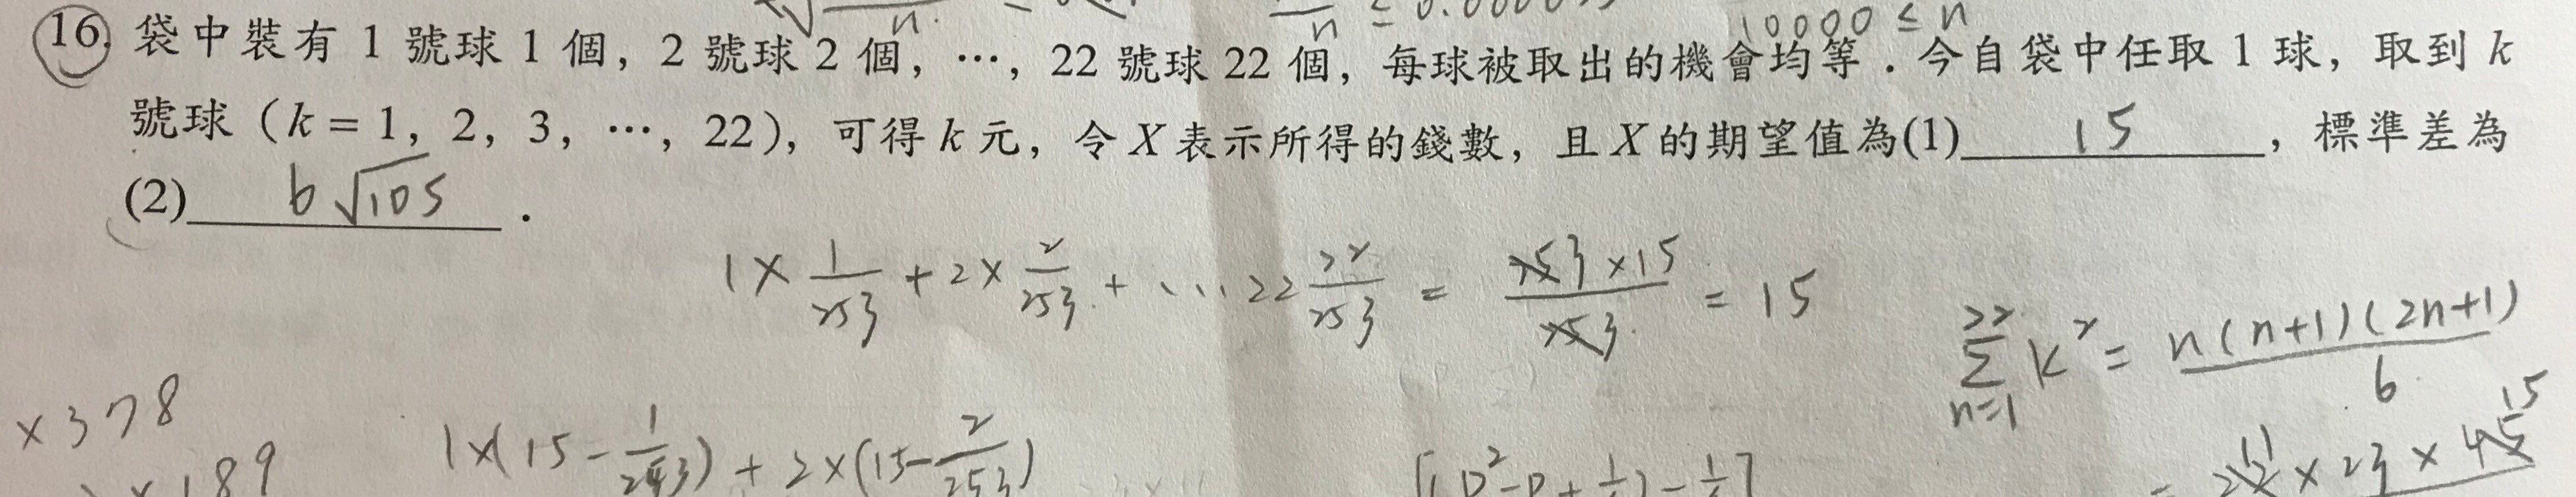 10000 ≤ n
16. 袋中裝有 1 號球 1 個，2 號球 2 個，…，22 號球 22 個，每球被取出的機會均等．今自袋中任取 1 球，取到 k
號球（k = 1，2，3，…，22），可得 k 元，令 X 表示所得的錢數，且 X 的期望值為(1) 15 ，標準差為
(2) 6√105 ．
1 × 1/253 + 2 × 2/253 + ... 22 22/253 = 253 × 15 / 253 = 15
22 Σ n=1 k² = n(n+1)(2n+1) / 6
× 378
1×(15 - 1/253) + 2×(15 - 2/253)
× 189
= 22 11 × 23 × 45 15